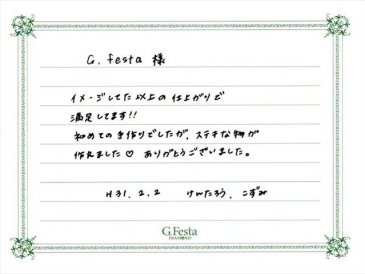 G. festa 様
イメージしてた以上の仕上がりで
満足してます!!
初めての手作りでしたが、ステキな物が
作れました♡ ありがとうございました。
H31. 2. 2 けんたろう、こずみ
G.Festa
DIAMOND